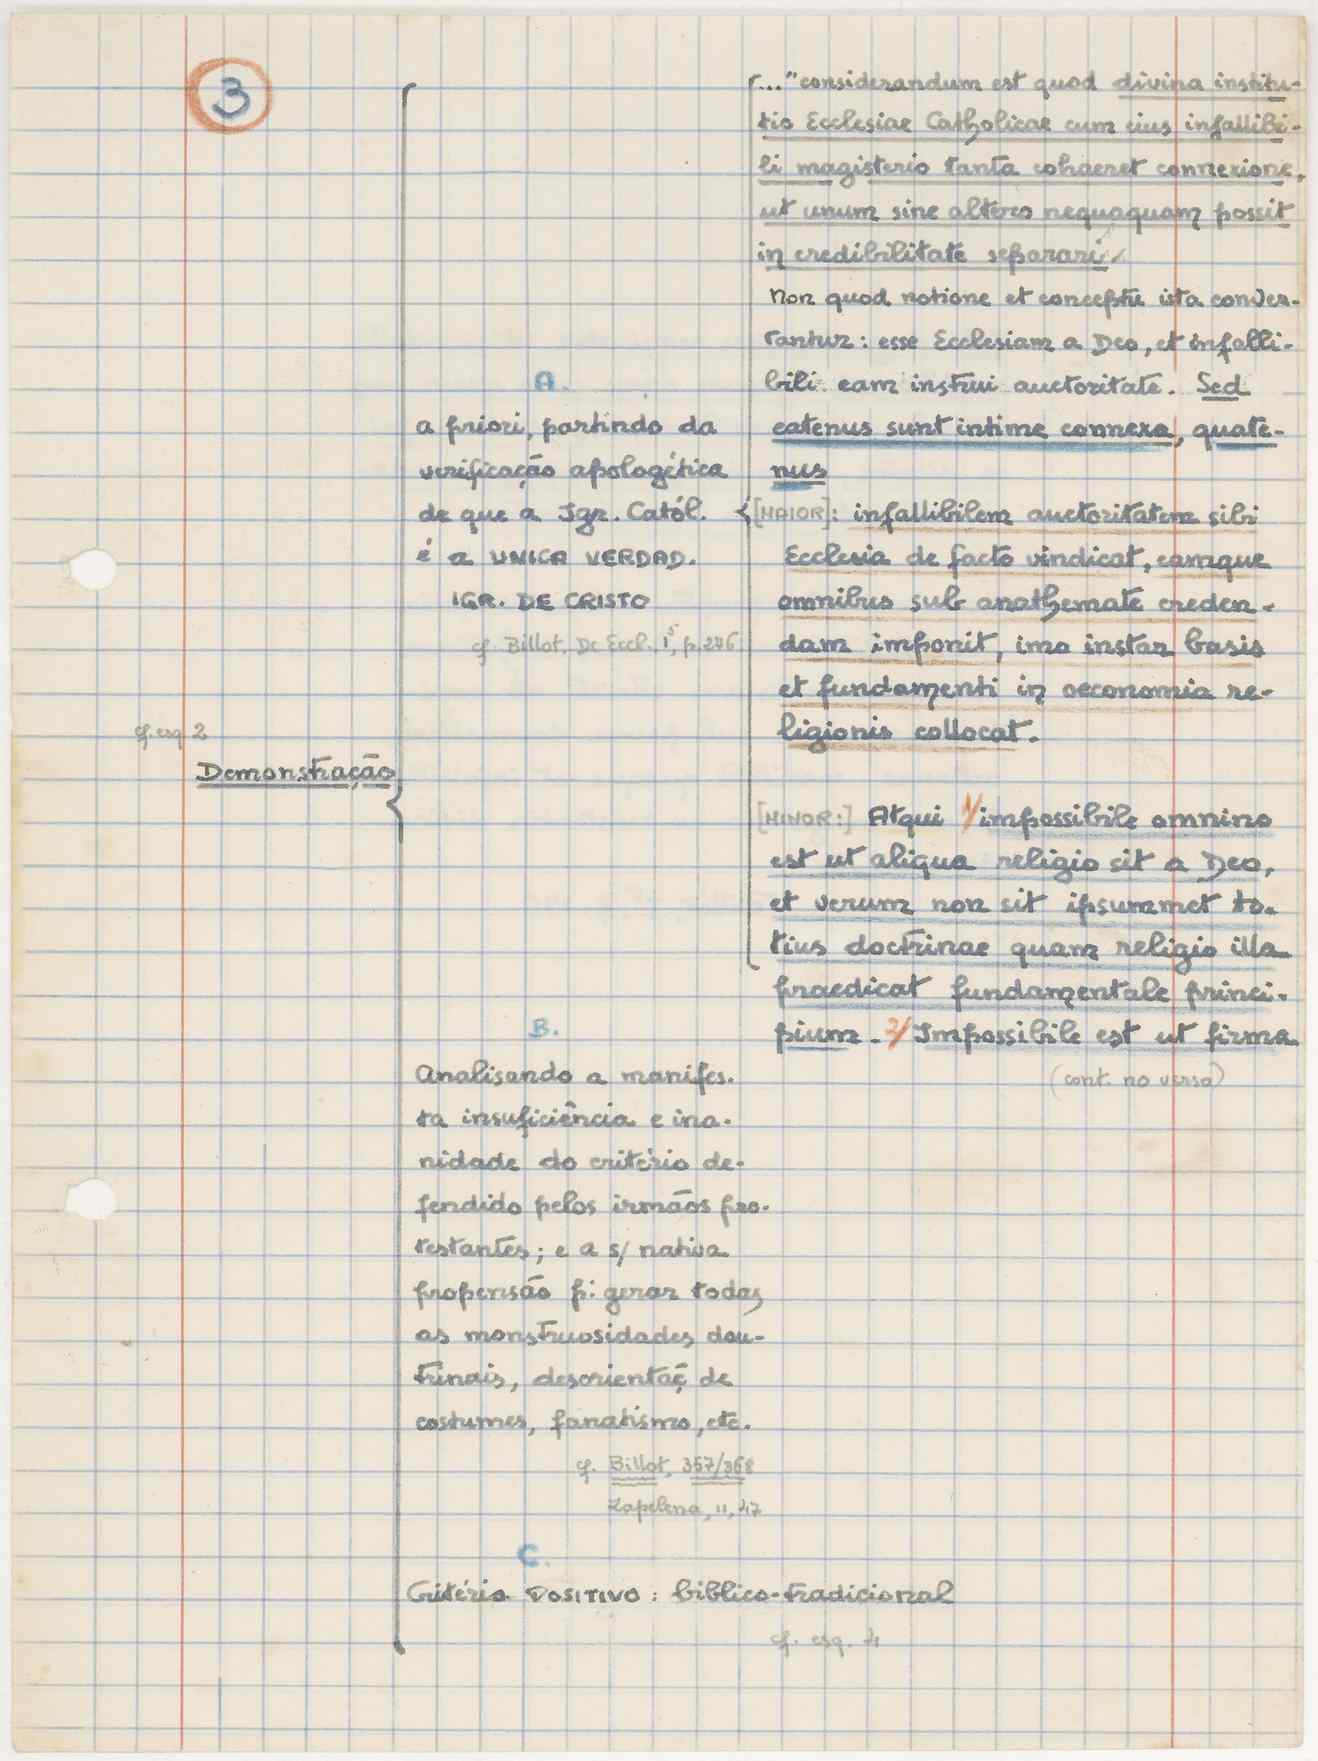 3
cf. esq. 2
Demonstração
A.
a priori, partindo da
verificação apologética
de que a Igr. Catól.
é a UNICA VERDAD.
IGR. DE CRISTO
cf. Billot, De Eccl., I⁵, p. 246
..."considerandum est quod divina institu-
tio Ecclesiae Catholicae cum eius infallibi-
li magisterio tanta cohaeret connexione,
ut unum sine altero nequaquam possit
in credibilitate separari.
Non quod notione et conceptu ista conver-
tantur: esse Ecclesiam a Deo, et infalli-
bili eam instrui auctoritate. Sed
eatenus sunt intime connexa, quate-
nus
[MAIOR]: infallibilem auctoritatem sibi
Ecclesia de facto vindicat, eamque
omnibus sub anathemate creden-
dam imponit, imo instar basis
et fundamenti in oeconomia re-
ligionis collocat.
[MINOR:] Atqui 1/ impossibile omnino
est ut aliqua religio sit a Deo,
et verum non sit ipsummet to-
tius doctrinae quam religio illa
praedicat fundamentale princi-
pium. 2/ Impossibile est ut firma
(cont. no verso)
B.
Analisando a manifes-
ta insuficiência e ina-
nidade do critério de-
fendido pelos irmãos pro-
testantes; e a s/ nativa
propensão p: gerar todas
as monstruosidades dou-
trinais, desorientaç̃ de
costumes, fanatismo, etc.
cf. Billot, 357/368
Zapelena, II, 47
C.
Critério POSITIVO: bíblico-tradicional
cf. esq. 4